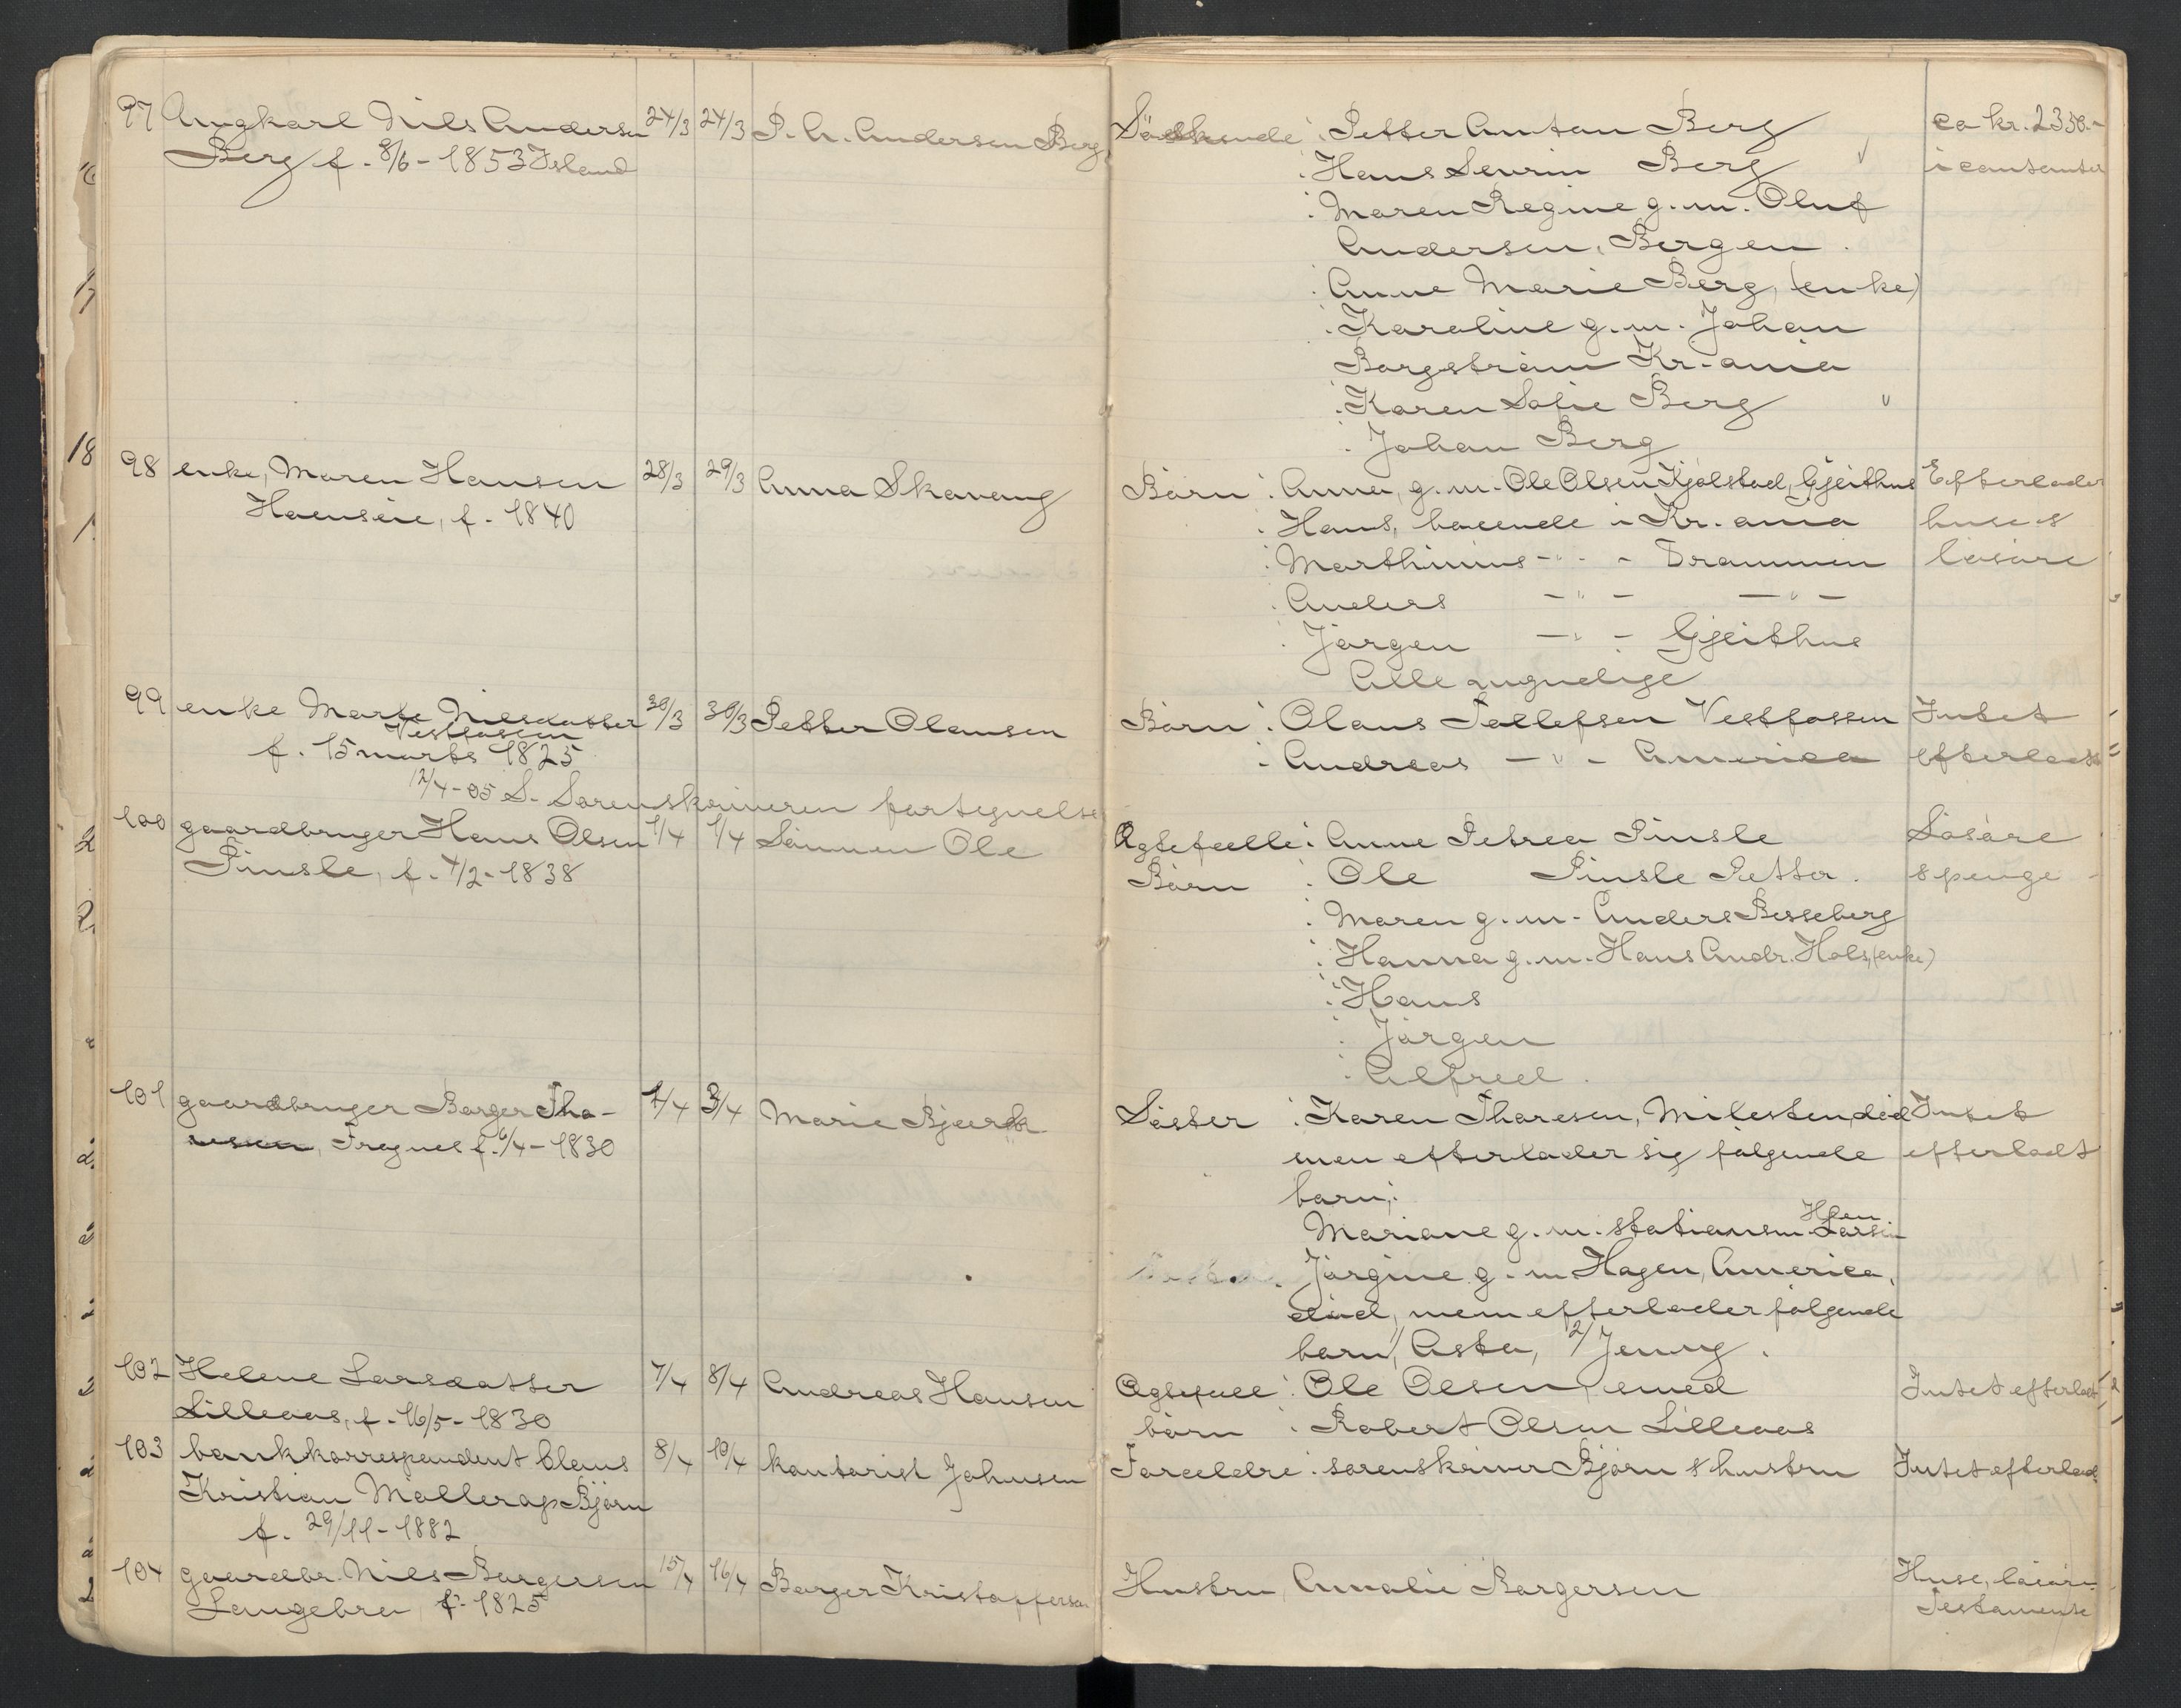 97 Ungkarl Nils Andersen 24/3 24/3 P. A. Andersen Berg Södskende : Petter Anton Berg ca kr. 2350.-
Berg f. 8/6 - 1853 Island : Hans Sevrin Berg i contanter
: Maren Regine g. m. Oluf
Andersen, Bergen.
: Anne Marie Berg, (enke)
: Karoline g. m. Johan
Borgström Kr.ania
: Karen Sofie Berg "
: Johan Berg
98 enke, Maren Hansen 28/3 29/3 Anna Skavang Börn : Anna, g. m. Ole Olsen Kjölstad, Gjeithus Efterlader
f. 1840 : Hans, boeende i Kr.ania huse &
: Marthinius -"- Drammen lösöre
: Anders -"- -"-
: Jörgen -"- Gjeithus
Alle myndige
99 enke Marte Nilsdatter 30/3 30/3 Petter Olausen Börn : Olaus Tollefsen Vestfossen Intet
Vestfossen
f. 15 marts 1825 : Andreas -"- America efterladt
12/4-05 S. Sorenskriveren fortegnelse
100 gaardbruger Hans Olsen 1/4 1/4 Sönnen Ole Ægtefælle : Anne Petrea Pinsle Lösöre
Pinsle, f. 4/2 - 1838 Börn : Ole Pinsle Petter. & penge
: Maren g. m. Anders Besseberg
: Hanna g. m. Hans Andr. Hols, (enke)
: Hans
: Jörgen
: Alfred.
101 gaardbruger Borger Tho- 1/4 3/4 Marie Bjerk Söster : Karen Thoresen, Milesten, död Intet
resen, Fregnes f. 6/4 - 1830 men efterlader sig fölgende efterladt
barn;
Hoen
Mariane g. m. stationsm. Larsen
Jörgine g. m Hagen, America,
död, men efterlader fölgende
barn 1/ Asta, 2/ Jenny.
102 Helene Larsdatter 7/4 8/4 Andreas Hansen Ægtefæll : Ole Olsen, smed Intet efterladt
Lilleaas, f. 16/5 - 1830 börn : Robert Olsen Lilleaas
103 bankkorrespondent Claus 8/4 10/4 kontorist Johnsen Foreeldre : sorenskriver Björn & hustru Intet efterlad
Kristian Mollerop Björn
f. 29/11 - 1882
104 gaardbr. Nils Borgersen 15/4 16/4 Borger Kristoffersen Hustru, Amalie Borgersen Huse, lösöre
Langebru, f. 1825 Testamente